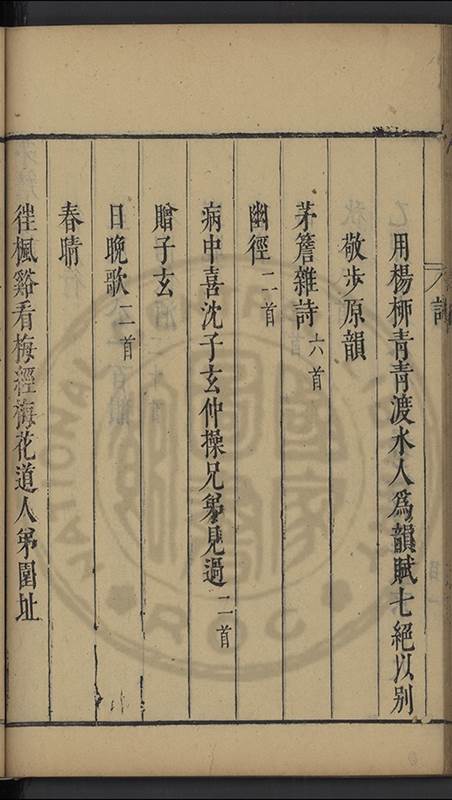 用楊栁青青渡水人爲韻賦七絕以别
敬步原韻
茅簷雜詩六首
幽徑二首
病中喜沈子玄仲操兄弟見過二首
贈子玄
日晩歌二首
春晴
徃楓谿看梅經梅花道人弟園址